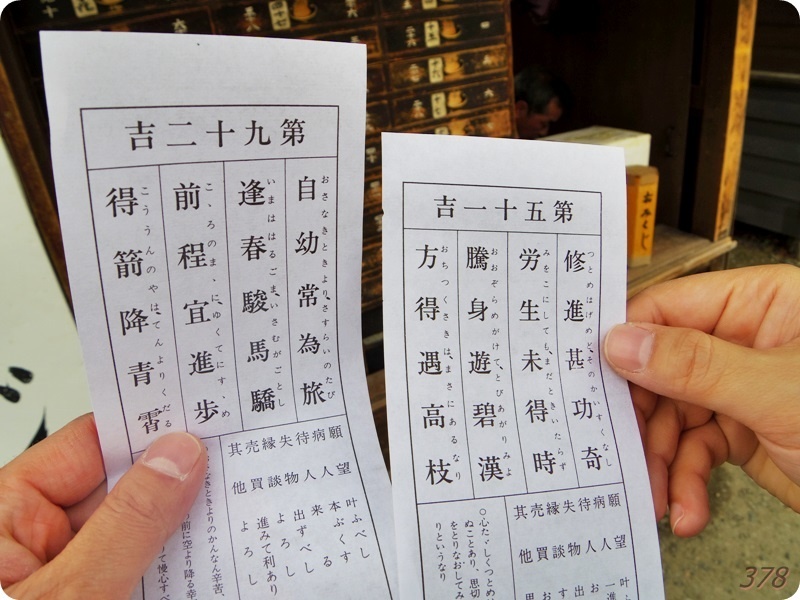 第九十二吉
自幼常為旅
おさなきときより、さすらいのたび
逢春駿馬驕
いまははるごま、いさむがごとし
前程宜進歩
こゝろのまゝにゆくてにすゝめ
得箭降青霄
こううんのやは、てんよりくだる
願望 叶ふべし
病人 本ぶくす
待人 来る
失物 出ずべし
縁談 よろし
売買 進みて利あり
其他 よろし
なきときよりのかんなん辛苦、
り前に空より降る幸
て慢心すべ
第五十一吉
修進甚功奇
つとめはげめど、そのかいすくなし
労生未得時
みをこにしても、まだときいたらず
騰身遊碧漢
おおぞらめがけて、とびあがりみよ
方得遇高枝
おちつくさきは、まさにあるなり
願望 叶ふ
病人 一進
待人 お
失物 出
縁談 お
売買 す
其他
〇心たゞしくつとめ
ぬことあり、思切
をとりなおしてみ
りというなり
おみくじ
378